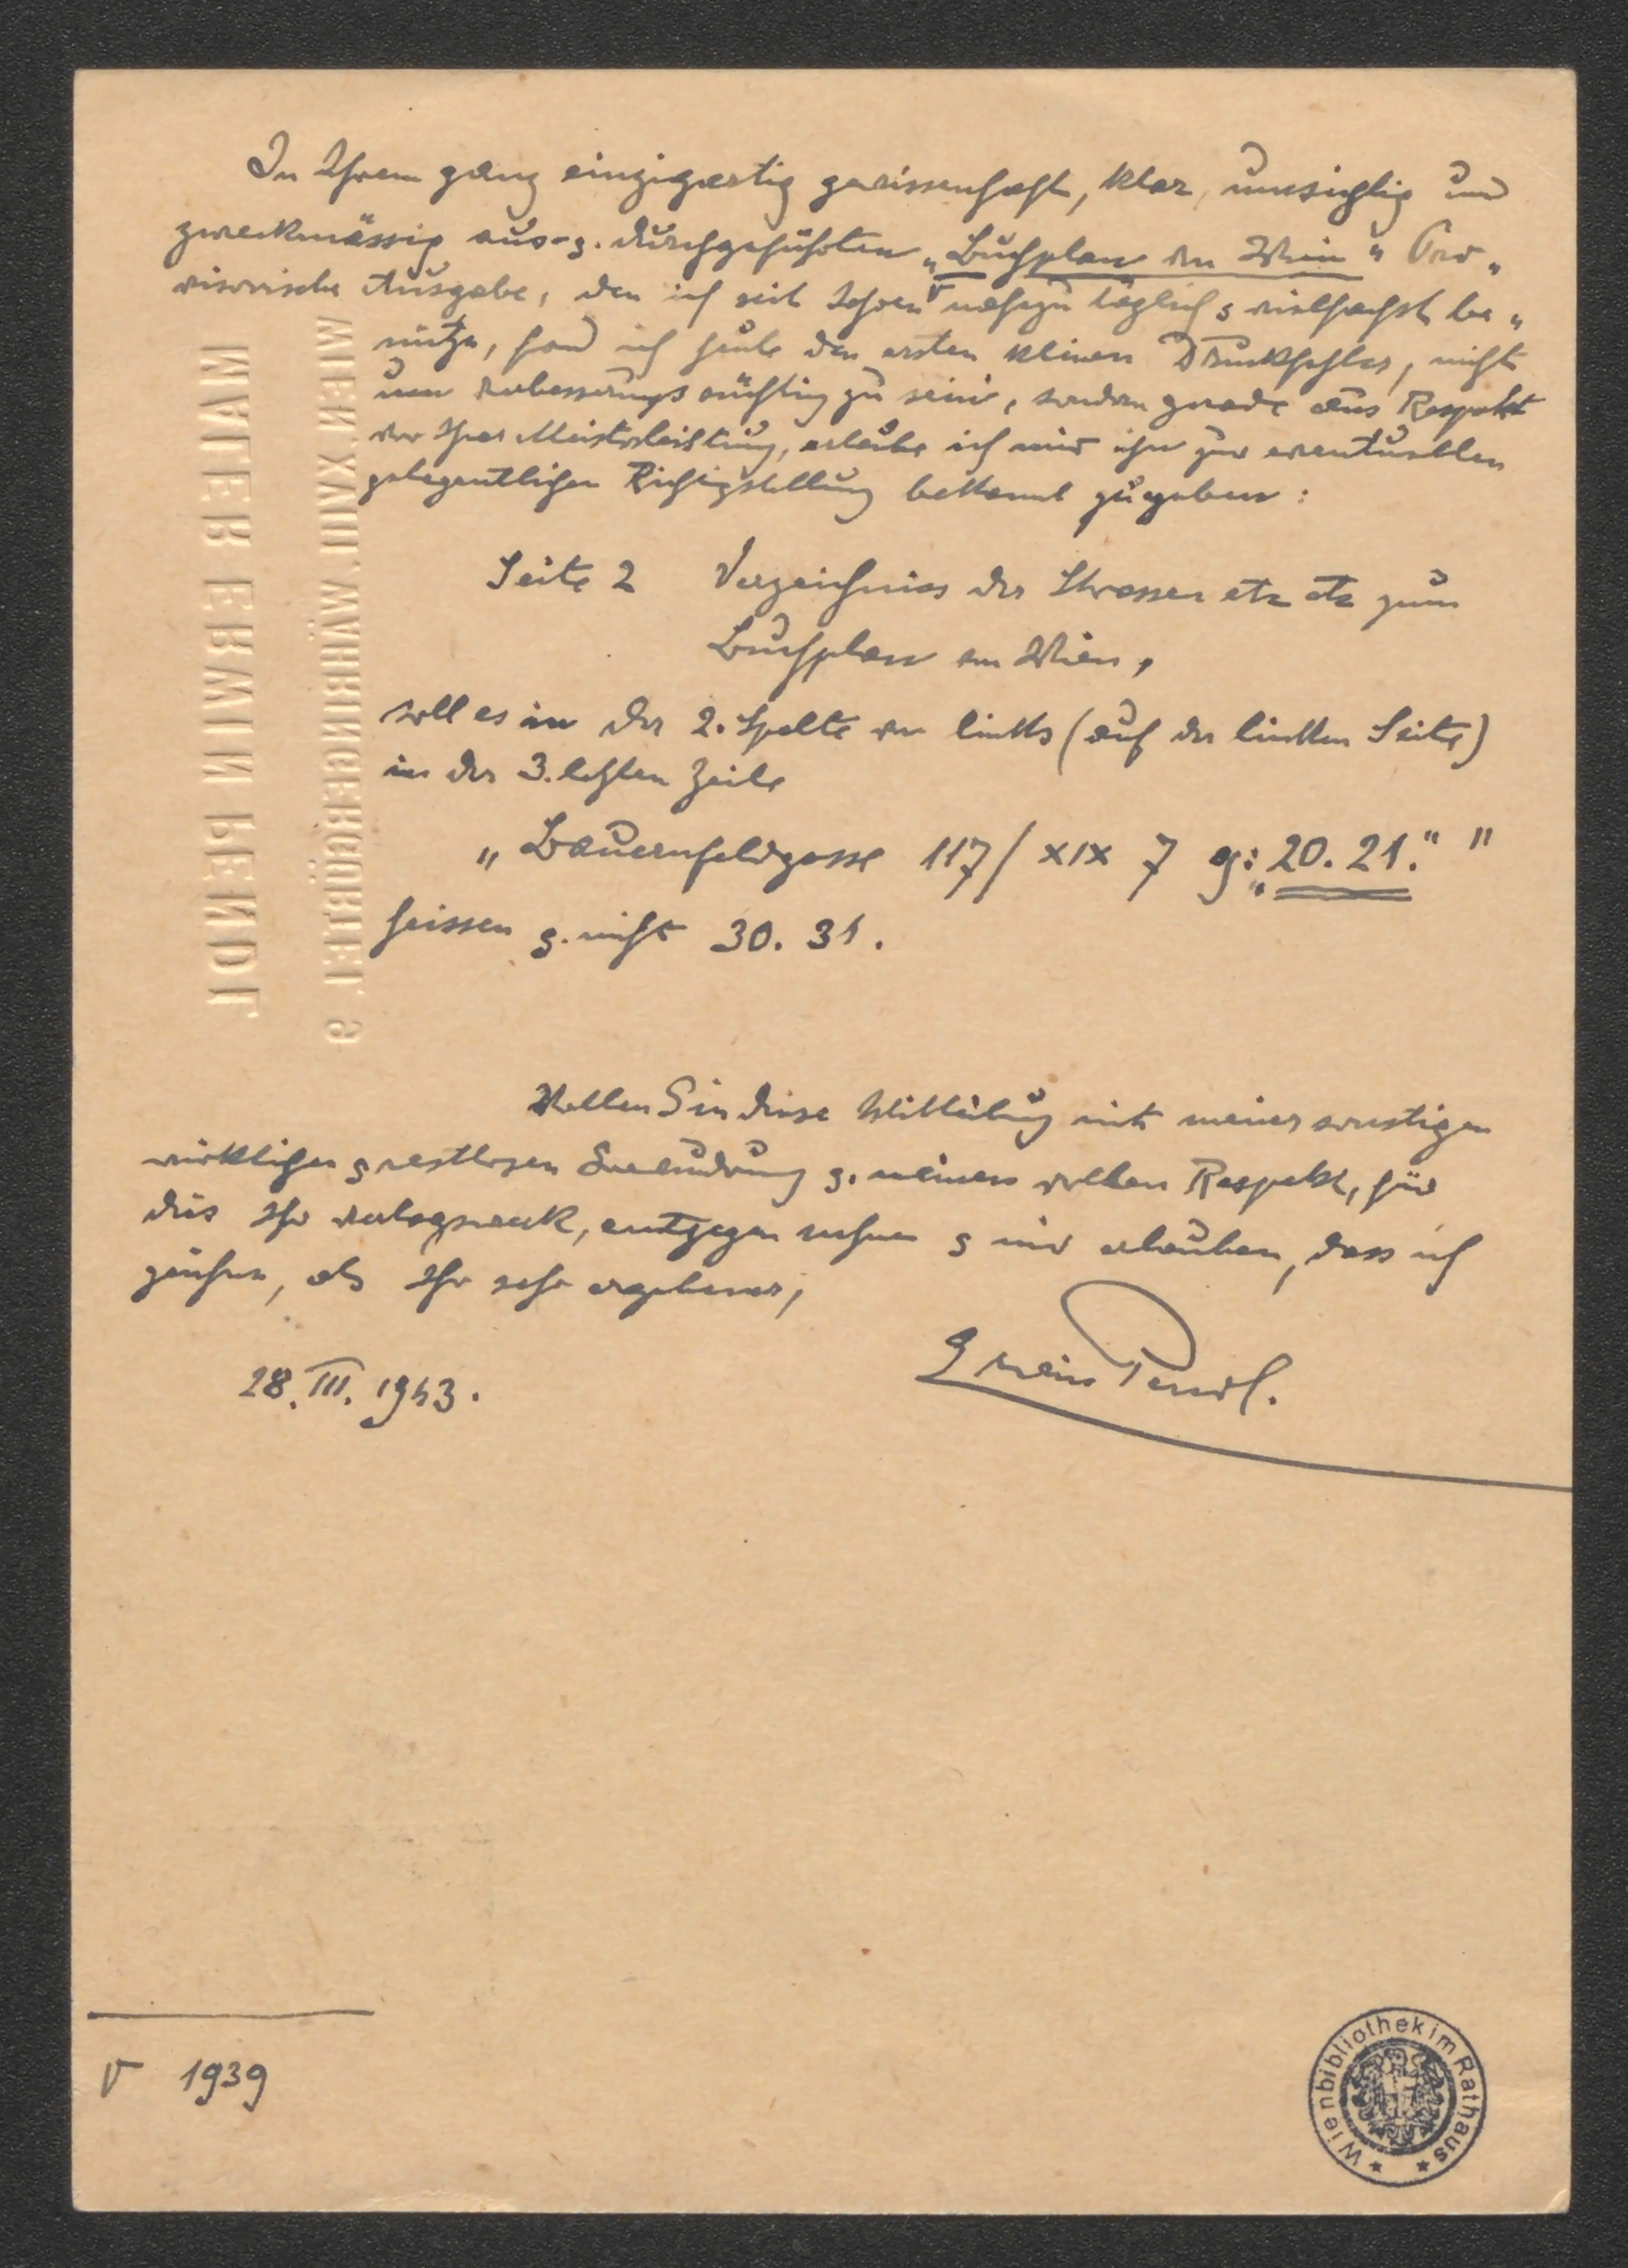 In Ihrem ganz einzigartig gewissenhaft, klar, umsichtig und
zweckmässig aus- u. durchgeführten „Buchplan von Wien" Pro„
visorische Ausgabe, den ich seit Jahren V nahezu täglich u vielfachst be„
nütze, fand ich heute den ersten kleinen Druckfehler, nicht
um verbesserungssüchtig zu sein, sondern gerade aus Respekt
vor Ihrer Meisterleistung, erlaube ich mir ihn zur eventuellen
gelegentlichen Richtigstellung bekannt zu geben:
Seite 2 Verzeichniss der Strassen etz etz zum
Buchplan von Wien,
soll es in der 2. Spalte von links (auf der linken Seite)
in der 3. letzten Zeile
„Bauernfeldgasse 117/XIX 7 g: „20. 21." "
heissen u. nicht 30. 31.
Wollen Sie diese Mitteilung mit meiner sonstigen
wirklichen u restlosen Bewunderung u. meinem vollen Respekt, für
dies Ihr Verlagswerk, entgegen nehmen u mir erlauben, dass ich
zeichne, als Ihr sehr ergebener,
Erwin Pendl.
28. III. 1943.
V 1939
MALER ERWIN PENDL
WIEN XVIII. WÄHRINGERGÜRTEL 9
Wienbibliothek im Rathaus